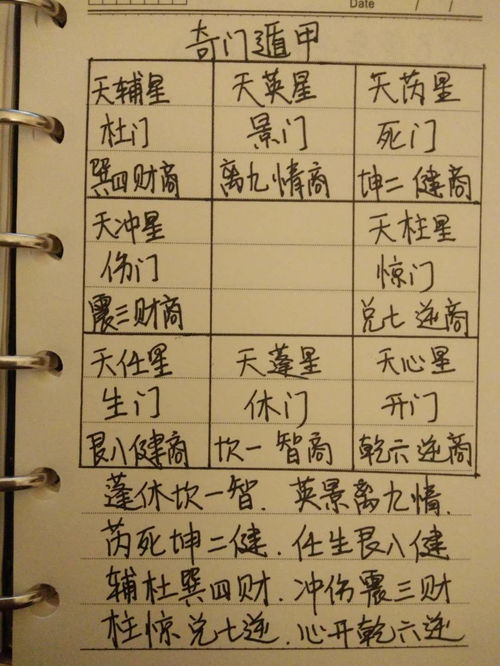 Date / /
奇门遁甲
天辅星 天英星 天芮星
杜门 景门 死门
巽四财商 离九情商 坤二健商
天冲星 天柱星
伤门 惊门
震三财商 兑七逆商
天任星 天蓬星 天心星
生门 休门 开门
艮八健商 坎一智商 乾六逆商
蓬休坎一智. 英景离九情.
芮死坤二健. 任生艮八健
辅杜巽四财. 冲伤震三财
柱惊兑七逆. 心开乾六逆